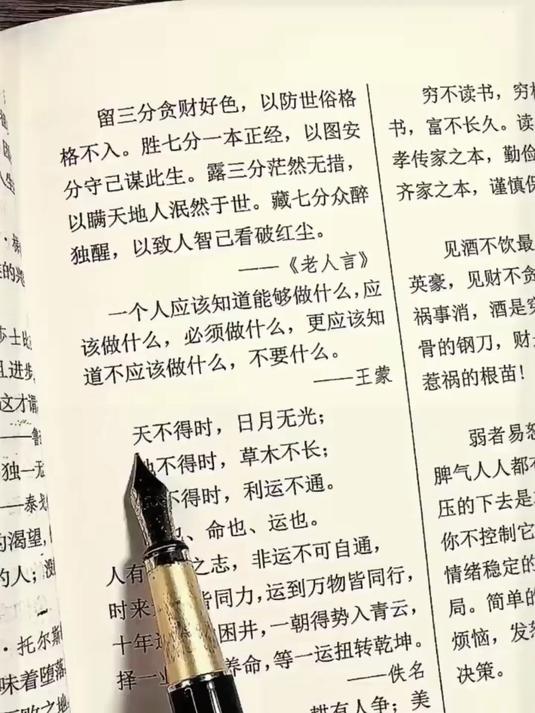 留三分贪财好色，以防世俗格
格不入。胜七分一本正经，以图安
分守己谋此生。露三分茫然无措，
以瞒天地人泯然于世。藏七分众醉
独醒，以致人智己看破红尘。
——《老人言》
一个人应该知道能够做什么，应
该做什么，必须做什么，更应该知
道不应该做什么，不要什么。
——王蒙
天不得时，日月无光；
不得时，草木不长；
不得时，利运不通。
、命也、运也。
人有 之志，非运不可自通，
时来 皆同力，运到万物皆同行，
十年 困井，一朝得势入青云，
择一 养命，等一运扭转乾坤。
——佚名
耕有人争；美
穷不读书，穷
书，富不长久。读
孝传家之本，勤俭
齐家之本，谨慎
见酒不饮最
英豪，见财不贪
祸事消，酒是穿
骨的钢刀，财
惹祸的根苗！
弱者易怒
脾气人人都
压的下去是
你不控制它
情绪稳定的
局。简单的
烦恼，发
决策。
人生
的
莎士比
且进步
这才谓
——鲁
独一无
——泰戈
的渴望，
的人；激
·托尔斯
味着堕落
败之地